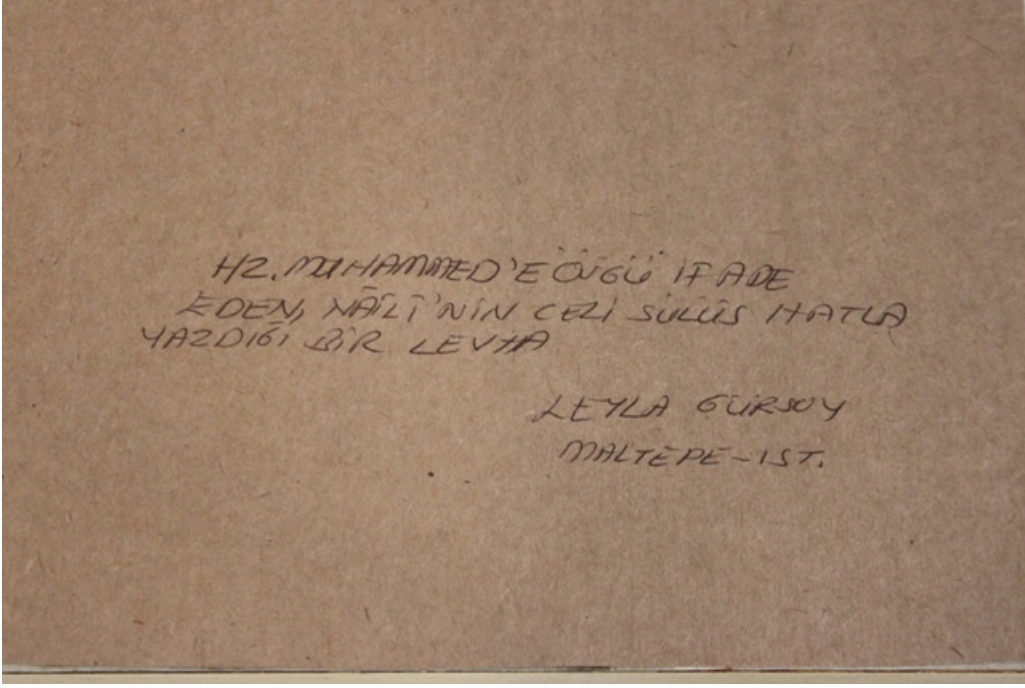 HZ. MUHAMMED'E ÖVGÜ İFADE
EDEN, NÂİLÎ'NİN CELİ SÜLÜS HATLA
YAZDIĞI BİR LEVHA
LEYLA GÜRSOY
MALTEPE-İST.